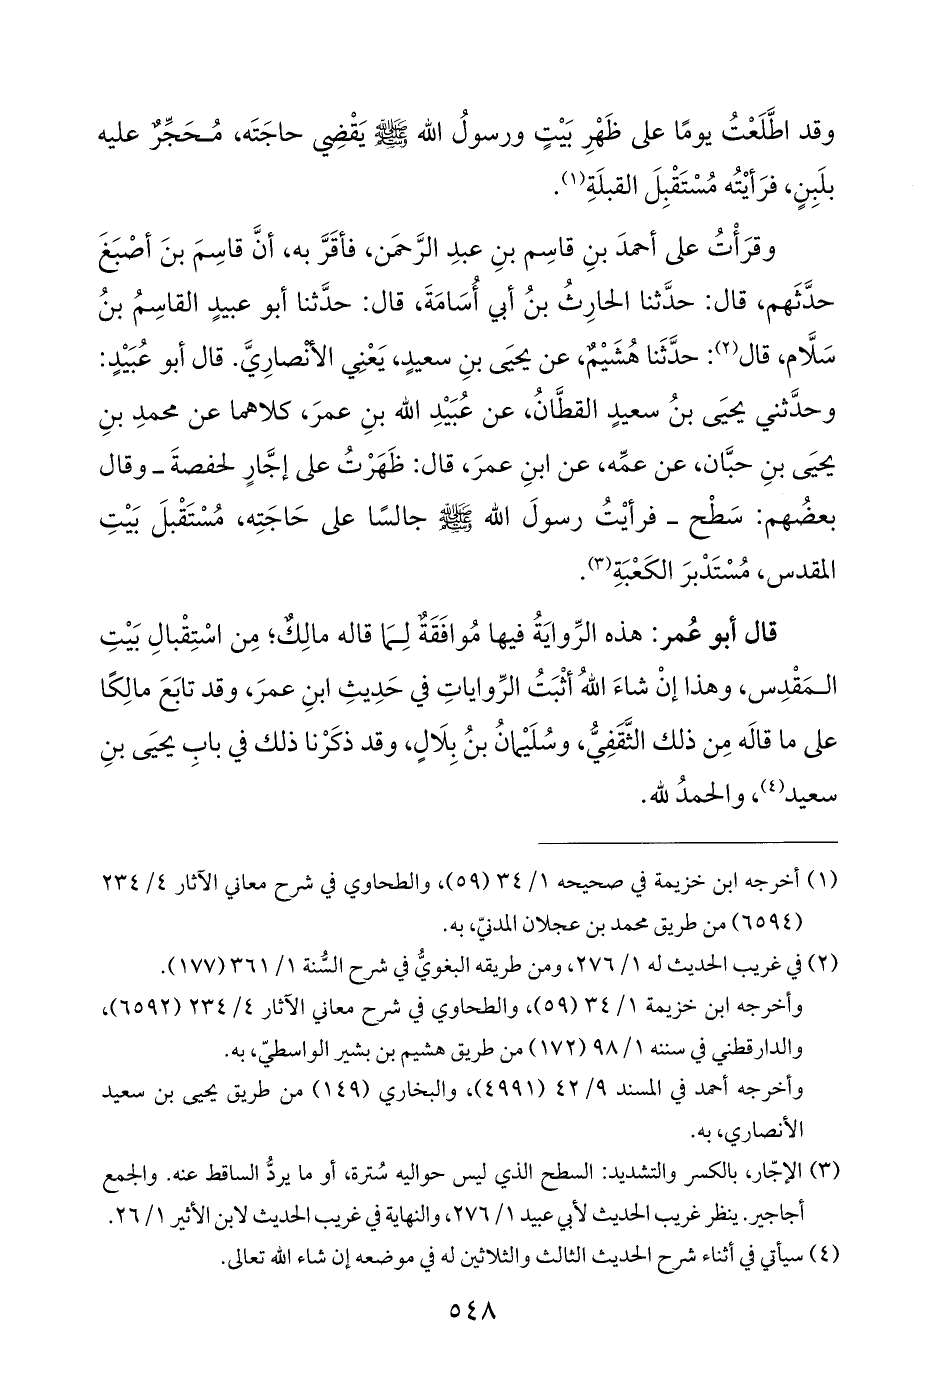 وقد اطَّلَعْتُ يومًا على ظَهْرِ بَيْتٍ ورسولُ الله ﷺ يَقْضِي حاجَتَه، مُـحَجَّرٌ عليه
بلَبِنٍ، فرَأيْتُه مُسْتَقْبِلَ القبلَةِ(١).
وقرَأْتُ على أحمدَ بنِ قاسِم بنِ عبدِ الرَّحمَن، فأقَرَّ به، أنَّ قاسِمَ بنَ أصْبَغَ
حدَّثَهم، قال: حدَّثنا الحارِثُ بنُ أبي أُسَامَةَ، قال: حدَّثنا أبو عبيدٍ القاسِمُ بنُ
سَلَّام، قال(٢): حدَّثَنا هُشَيْمٌ، عن يحيَى بنِ سعيدٍ، يَعْنِي الأنْصارِيَّ. قال أبو عُبَيْدٍ:
وحدَّثني يحيَى بنُ سعيدٍ القطَّانُ، عن عُبَيْدِ الله بنِ عمرَ، كلاهما عن محمدِ بنِ
يحيَى بنِ حبَّان، عن عمِّه، عن ابنِ عمرَ، قال: ظَهَرْتُ على إجَّارٍ لحفصةَ ـ وقال
بعضُهم: سَطْح ـ فرأيْتُ رسولَ الله ﷺ جالسًا على حَاجَتِه، مُسْتَقْبلَ بَيْتِ
المقدس، مُسْتَدْبرَ الكَعْبَةِ(٣).
قال أبو عُمر: هذه الرِّوايَةُ فيها مُوافَقَةٌ لِـمَا قاله مالِكٌ؛ مِن اسْتِقْبالِ بَيْتِ
الـمَقْدِس، وهذا إنْ شاءَ اللهُ أثْبَتُ الرِّواياتِ في حَدِيثِ ابنِ عمرَ، وقد تابَعَ مالِكًا
على ما قالَه مِن ذلك الثَّقَفِيُّ، وسُلَيْمانُ بنُ بِلَالٍ، وقد ذكَرْنا ذلك في بابِ يحيَى بنِ
سعيد(٤)، والحمدُ لله.
(١) أخرجه ابن خزيمة في صحيحه ١/ ٣٤ (٥٩)، والطحاوي في شرح معاني الآثار ٤/ ٢٣٤
(٦٥٩٤) من طريق محمد بن عجلان المدنيّ، به.
(٢) في غريب الحديث له ١/ ٢٧٦، ومن طريقه البغويُّ في شرح السُّنة ١/ ٣٦١ (١٧٧).
وأخرجه ابن خزيمة ١/ ٣٤ (٥٩)، والطحاوي في شرح معاني الآثار ٤/ ٢٣٤ (٦٥٩٢)،
والدارقطني في سننه ١/ ٩٨ (١٧٢) من طريق هشيم بن بشير الواسطيّ، به.
وأخرجه أحمد في المسند ٩/ ٤٢ (٤٩٩١)، والبخاري (١٤٩) من طريق يحيى بن سعيد
الأنصاري، به.
(٣) الإجّار، بالكسر والتشديد: السطح الذي ليس حواليه سُترة، أو ما يردُّ الساقط عنه. والجمع
أجاجير. ينظر غريب الحديث لأبي عبيد ١/ ٢٧٦، والنهاية في غريب الحديث لابن الأثير ١/ ٢٦.
(٤) سيأتي في أثناء شرح الحديث الثالث والثلاثين له في موضعه إن شاء الله تعالى.
٥٤٨